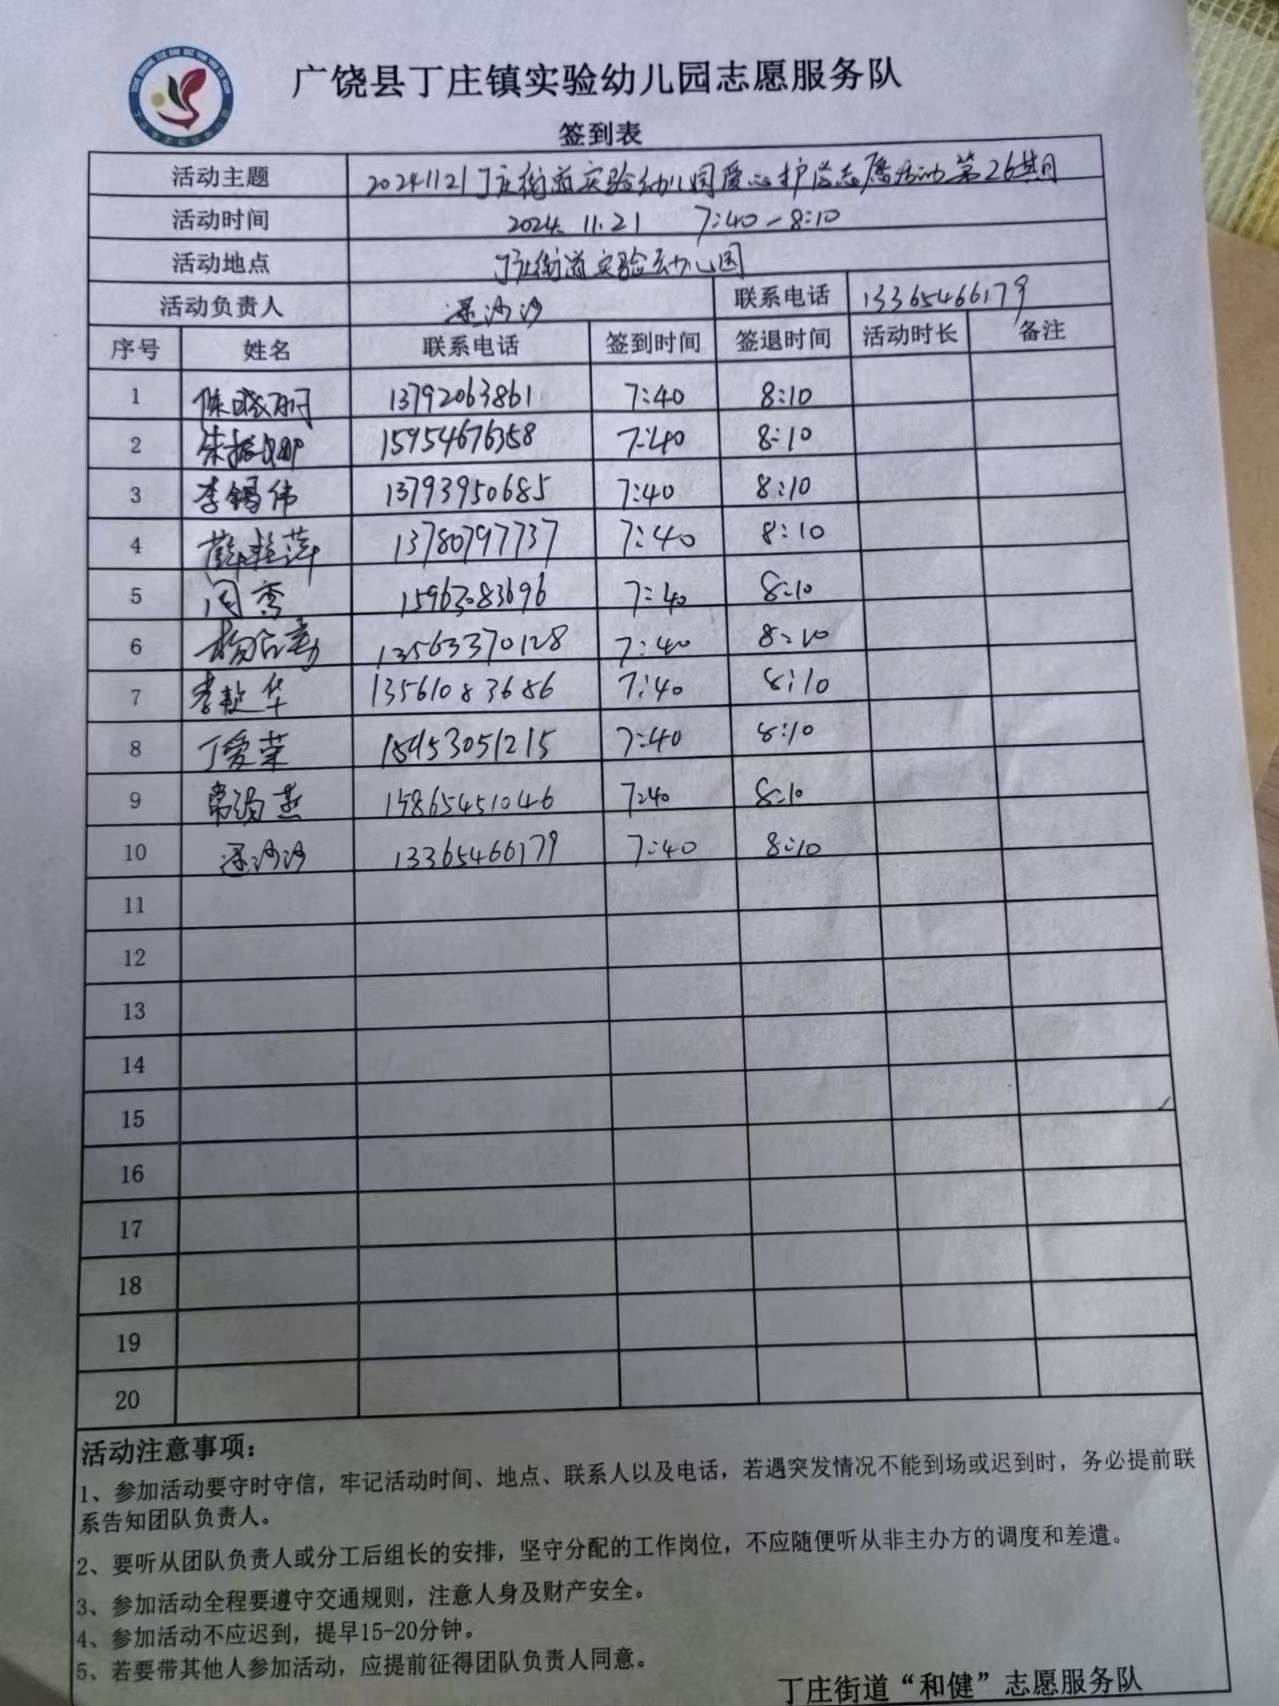 广饶县丁庄镇实验幼儿园志愿服务队
签到表
活动主题 20241121丁庄街道实验幼儿园爱心护学志愿活动第26期
活动时间 2024.11.21 7:40-8:10
活动地点 丁庄街道实验幼儿园
活动负责人 梁沙沙 联系电话 13365466179
序号 姓名 联系电话 签到时间 签退时间 活动时长 备注
1 陈晓丽 13792063861 7:40 8:10
2 朱振娜 15954676358 7:40 8:10
3 李锡伟 13793950685 7:40 8:10
4 薛艳萍 13780797737 7:40 8:10
5 闫秀 7:40 8:10
6 13563370128 7:40 8:10
7 李敬华 13561083686 7:40 8:10
8 丁爱荣 15953051215 7:40 8:10
9 常海燕 15865451046 7:40 8:10
10 梁沙沙 13365466179 7:40 8:10
11
12
13
14
15
16
17
18
19
20
活动注意事项：
1、参加活动要守时守信，牢记活动时间、地点、联系人以及电话，若遇突发情况不能到场或迟到时，务必提前联
系告知团队负责人。
2、要听从团队负责人或分工后组长的安排，坚守分配的工作岗位，不应随便听从非主办方的调度和差遣。
3、参加活动全程要遵守交通规则，注意人身及财产安全。
4、参加活动不应迟到，提早15-20分钟。
5、若要带其他人参加活动，应提前征得团队负责人同意。
丁庄街道“和健”志愿服务队